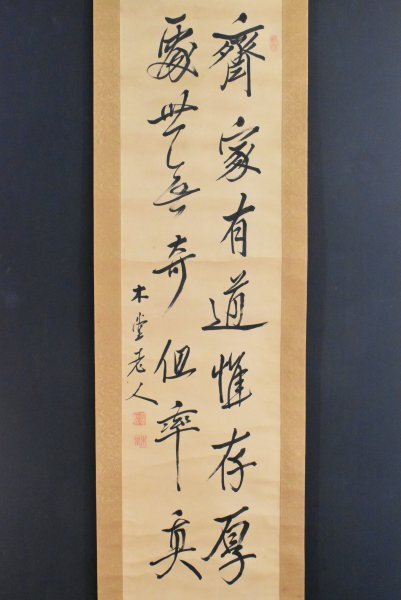 齊家有道惟存厚
處世無奇但率真
木堂老人